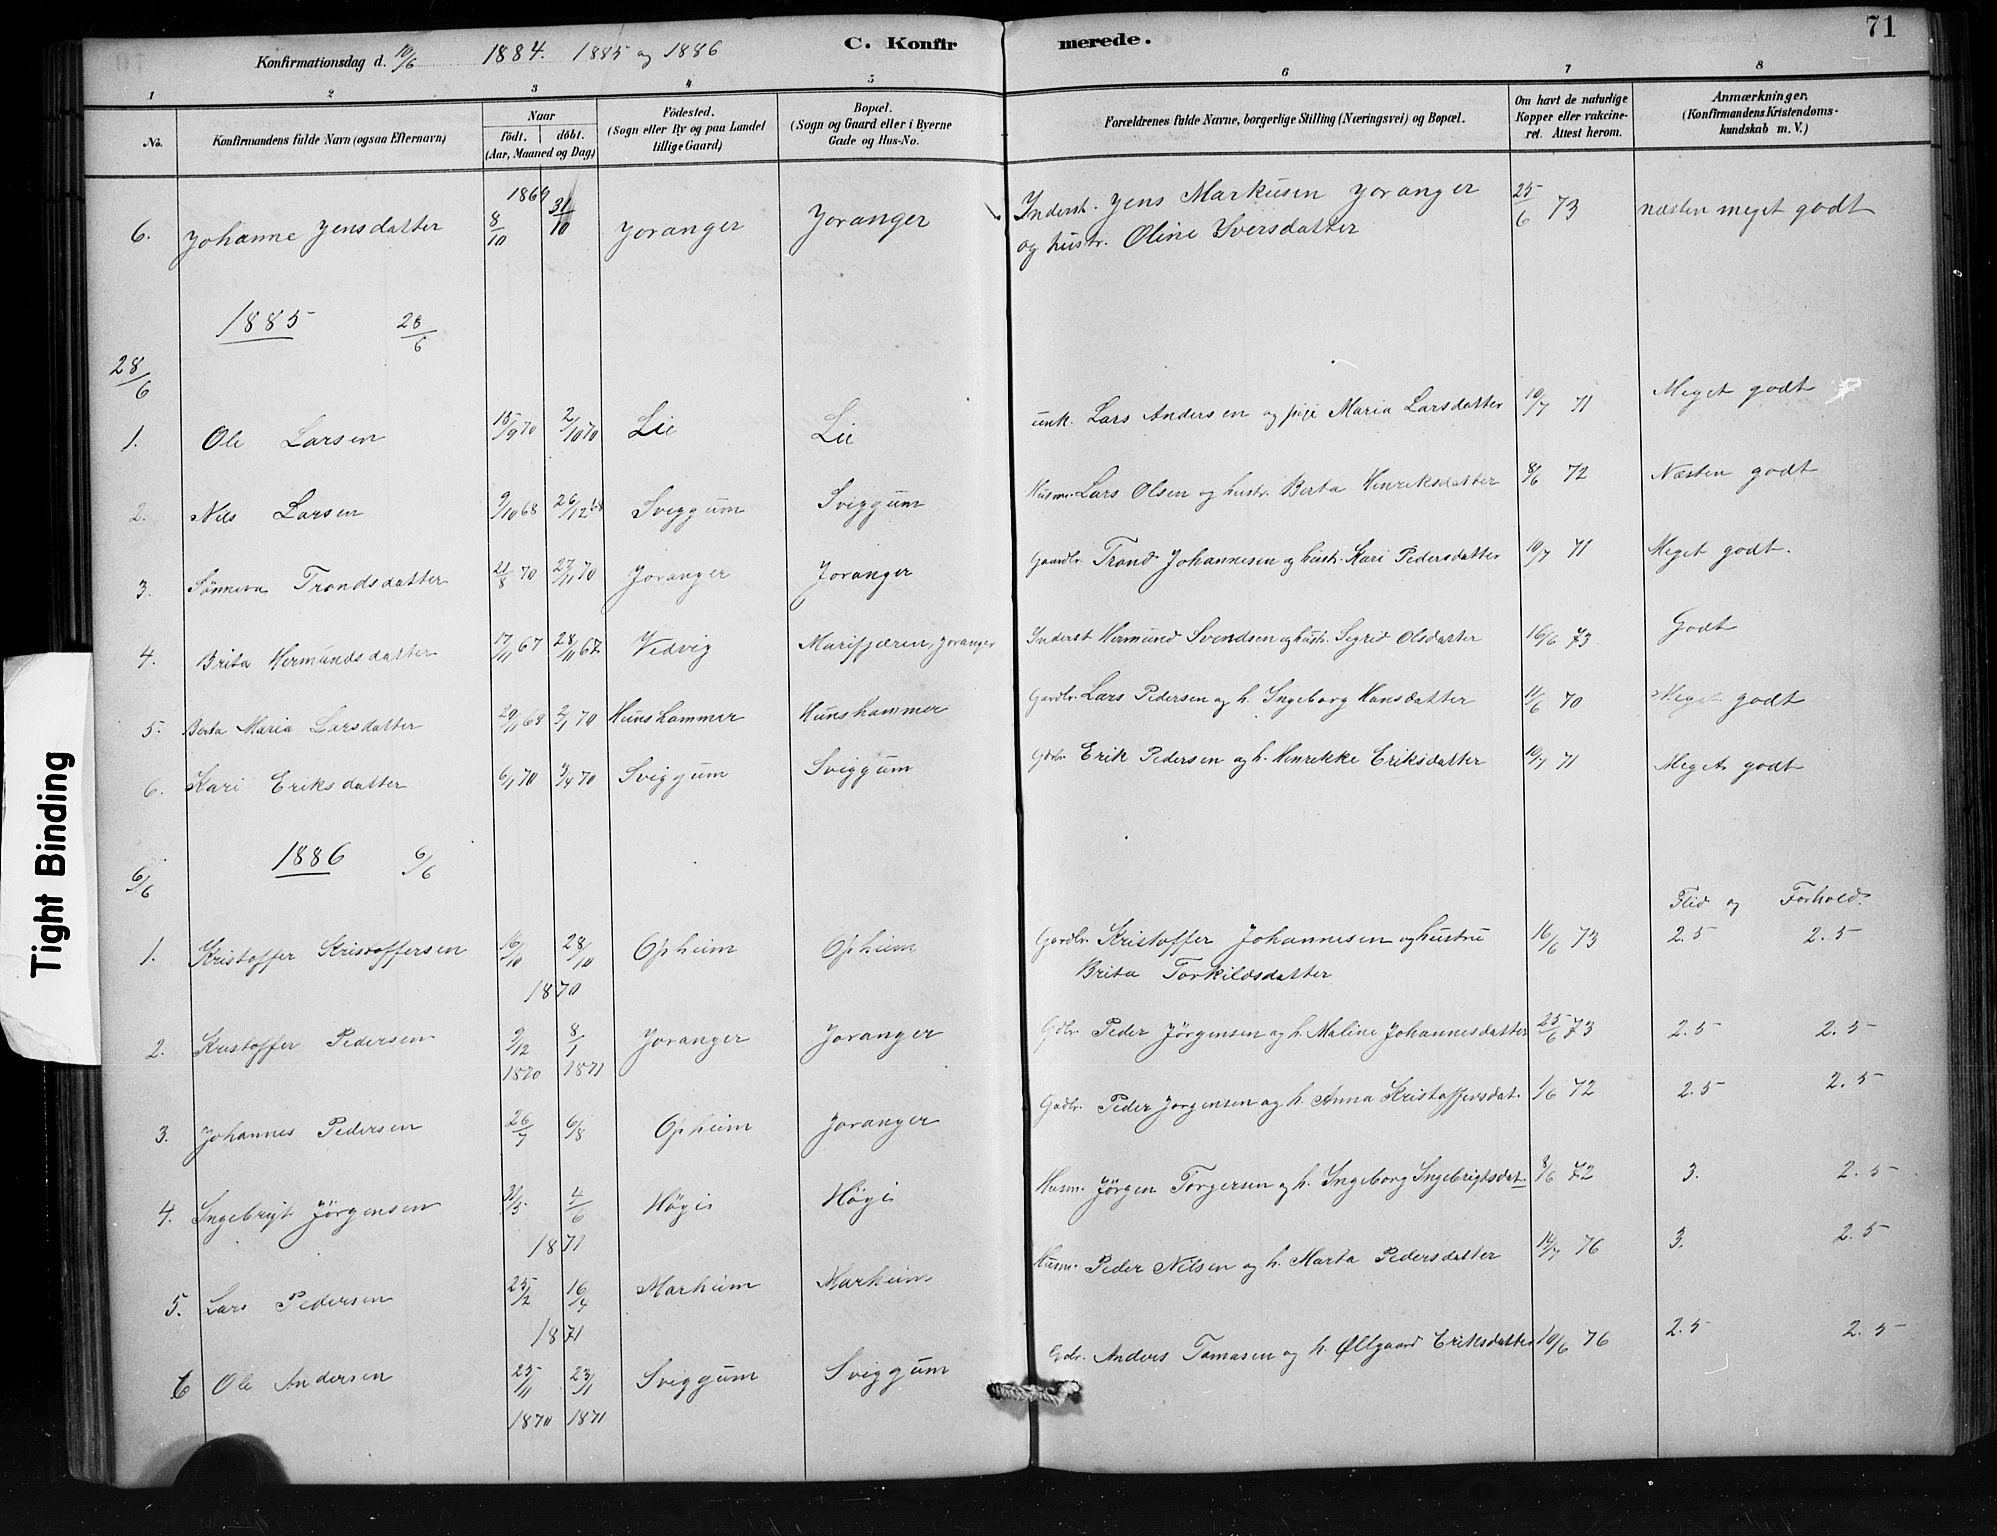 71
Konfirmationsdag d. 10/6 1884. 1885 og 1886 C. Konfirmerede.
1 2 3 4 5 6 7 8
No. Konfirmandens fulde Navn (ogsaa Efternavn) Naar født. døbt. (Aar, Maaned og Dag) Fødested. (Sogn eller By og paa Landet tillige Gaard) Bopæl. (Sogn og Gaard eller i Byerne Gade og Hus-No. Forældrenes fulde Navne, borgerlige Stilling (Næringsvei) og Bopæl. Om havt de naturlige Kopper eller vakcineret. Attest herom. Anmærkninger, (Konfirmandens Kristendomskundskab m. V.)
1869
6. Johanne Jensdatter 8/10 31/10 Joranger Joranger Inderst. Jens Markusen Joranger 25/6 73 næsten meget godt
og hustr. Oline Iversdatter
1885 28/6
28/6
1. Ole Larsen 15/9 70 2/10 70 Lie Lie unk. Lars Andersen og pige Maria Larsdatter 10/7 71 Meget godt
2. Nils Larsen 9/10 68 26/12 68 Sviggum Sviggum Husm. Lars Olsen og hustr. Berta Henriksdatter 8/6 72 Næsten godt
3. Sønneva Trondsdatter 21/8 70 27/11 70 Joranger Joranger Gaardbr. Trond Johannesen og hustr. Kari Pedersdatter 10/7 71 Meget godt.
4. Brita Hermundsdatter 17/11 67 28/11 67 Vedvig Marifjæren, Joranger Inderst Hermund Svendsen og hustr. Sigrid Olsdatter 16/6 73. Godt
5. Berta Maria Larsdatter 29/11 69 2/1 70 Hunshammer Hunshammer Gardbr. Lars Pedersen og h. Ingeborg Hansdatter 11/6 70 Meget godt
6. Kari Eriksdatter 6/1 70 3/4 70 Sviggum Sviggum Gdbr. Erik Pedersen og h. Henrikke Eriksdatter 10/7 71 Meget godt
1886 6/6
6/6
Flid og Forhold.
1. Kristoffer Kristoffersen 16/10 28/10 Opheim Opheim Gardbr. Kristoffer Johannesen og hustru 16/6 73 2.5 2.5
1870 Brita Torkildsdatter
2. Kristoffer Pedersen 9/12 8/1 Joranger Joranger Gdbr. Peder Jørgensen og h. Maline Johannesdatter 25/6 73 2.5 2.5
1870 1871
3. Johannes Pedersen 26/7 6/8 Opheim Joranger Gadbr. Peder Jørgensen og h. Anna Kristoffersdat. 1/6 72 2.5 2.5
4. Ingebrigt Jørgensen 31/5 4/6 Høgi Høgi Husm. Jørgen Torgersen og h. Ingeborg Ingebrigtsdat. 8/6 72 3. 2.5
1871
5. Lars Pedersen 25/2 16/4 Marheim Marheim Husm. Peder Nilsen og h. Marta Pedersdatter 14/7 76 3. 2.5
1871
6 Ole Andersen 25/11 23/1 Sviggum Sviggum Gdbr. Anders Tomasen og h. Øllgaard Eriksdatter 10/6 76 2.5 2.5
1870 1871
Tight Binding